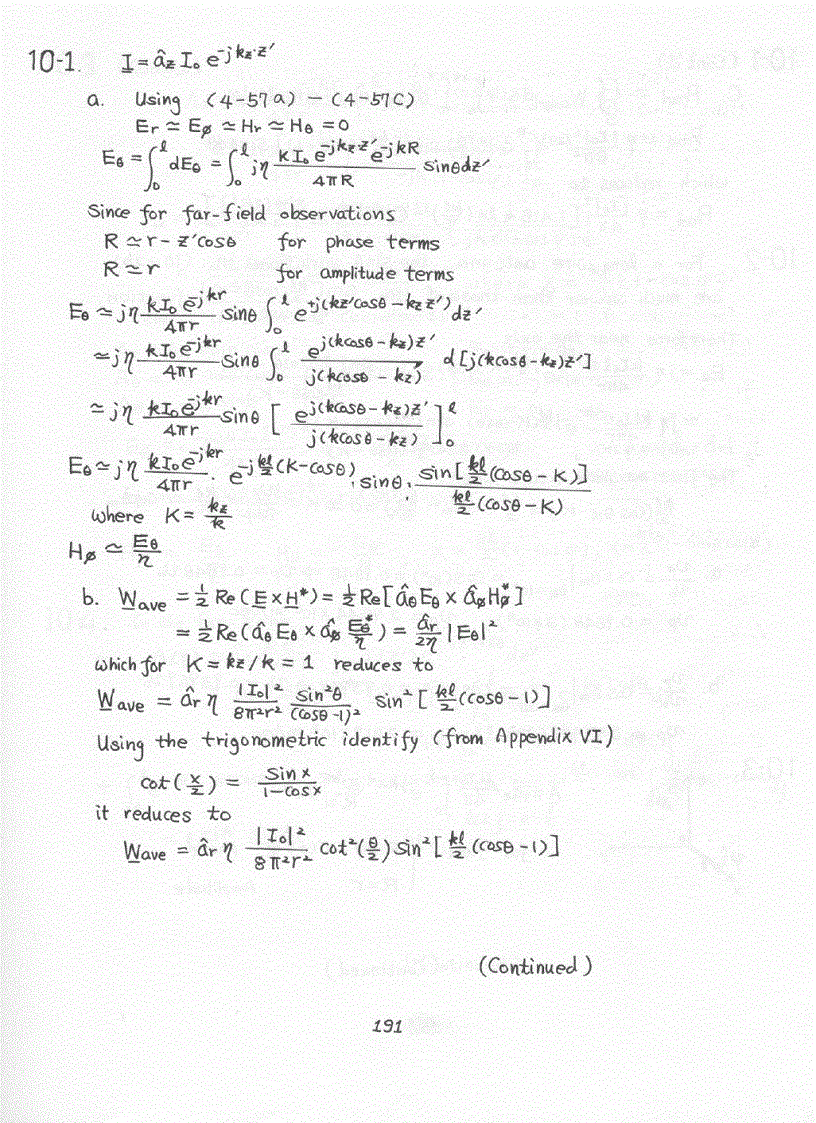 10-1. I = âz I₀ e^{-jkz·z′}
a. Using (4-57a) – (4-57C)
Er ≃ Eø ≃ Hr ≃ Hθ = 0
Eθ = ∫₀^l dEθ = ∫₀^l jη (k I₀ e^{-jkz z′} e^{-jkR} / 4πR) sinθ dz′
Since for far-field observations
R ≃ r - z′cosθ for phase terms
R ≃ r for amplitude terms
Eθ ≃ jη (kI₀ e^{-jkr} / 4πr) sinθ ∫₀^l e^{+j(kz′cosθ - kz z′)} dz′
≃ jη (kI₀ e^{-jkr} / 4πr) sinθ ∫₀^l (e^{j(kcosθ - kz)z′} / j(kcosθ - kz)) d[j(kcosθ - kz)z′]
≃ jη (kI₀ e^{-jkr} / 4πr) sinθ [ e^{j(kcosθ - kz)z′} / j(kcosθ - kz) ]₀^l
Eθ ≃ jη (kI₀ e^{-jkr} / 4πr) · e^{-j(kl/2)(K - cosθ)} sinθ · sin[(kl/2)(cosθ - K)] / (kl/2)(cosθ - K)
where K = kz/k
Hø ≃ Eθ/η
b. Wave = ½ Re(E × H*) = ½ Re[âθ Eθ × âø Hø*]
= ½ Re(âθ Eθ × âø Eθ*/η) = (âr/2η) |Eθ|²
which for K = kz/k = 1 reduces to
Wave = âr η (|I₀|² / 8π²r²) (sin²θ / (cosθ - 1)²) sin²[(kl/2)(cosθ - 1)]
Using the trigonometric identify (from Appendix VI)
cot(x/2) = sin x / (1 - cos x)
it reduces to
Wave = âr η (|I₀|² / 8π²r²) cot²(θ/2) sin²[(kl/2)(cosθ - 1)]
(Continued)
191